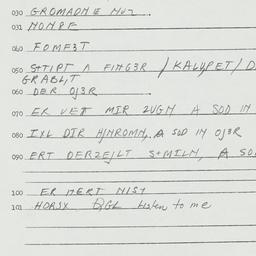 030 GROMADNE NUZ
031 NONPE
040 FOMF3T
050 S+TIPT A FING3R / KALYPET / D
GRABLIT
060 DER OJ3R
070 ER VET MIR ZUGN A SOD IN
080 IXL DIR AJNROMN, A SOD IN OJ3R
090 ERT DERZEJLT S+MILN, A SO
100 ER HERT NIST
101 HORSX Listen to me